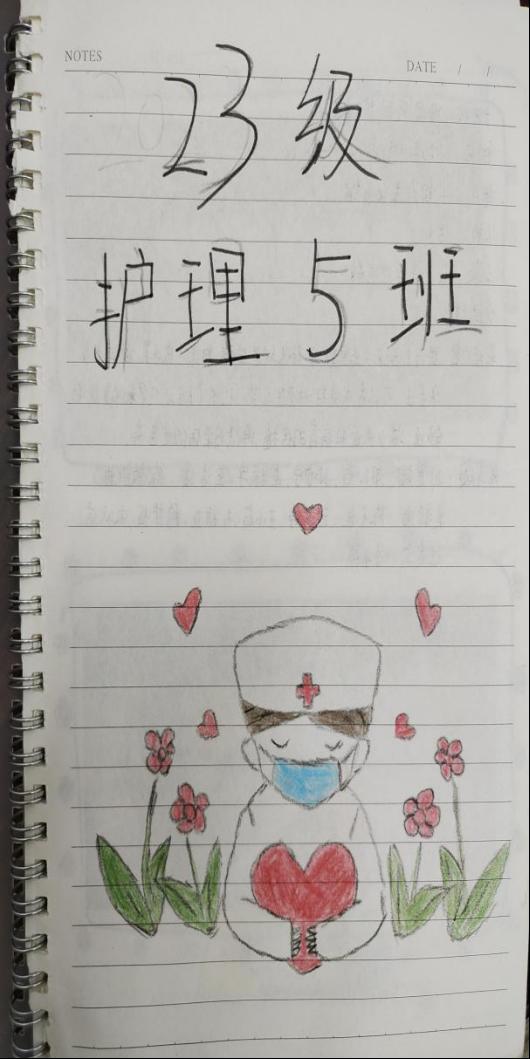 NOTES DATE / /
23级
护理5班